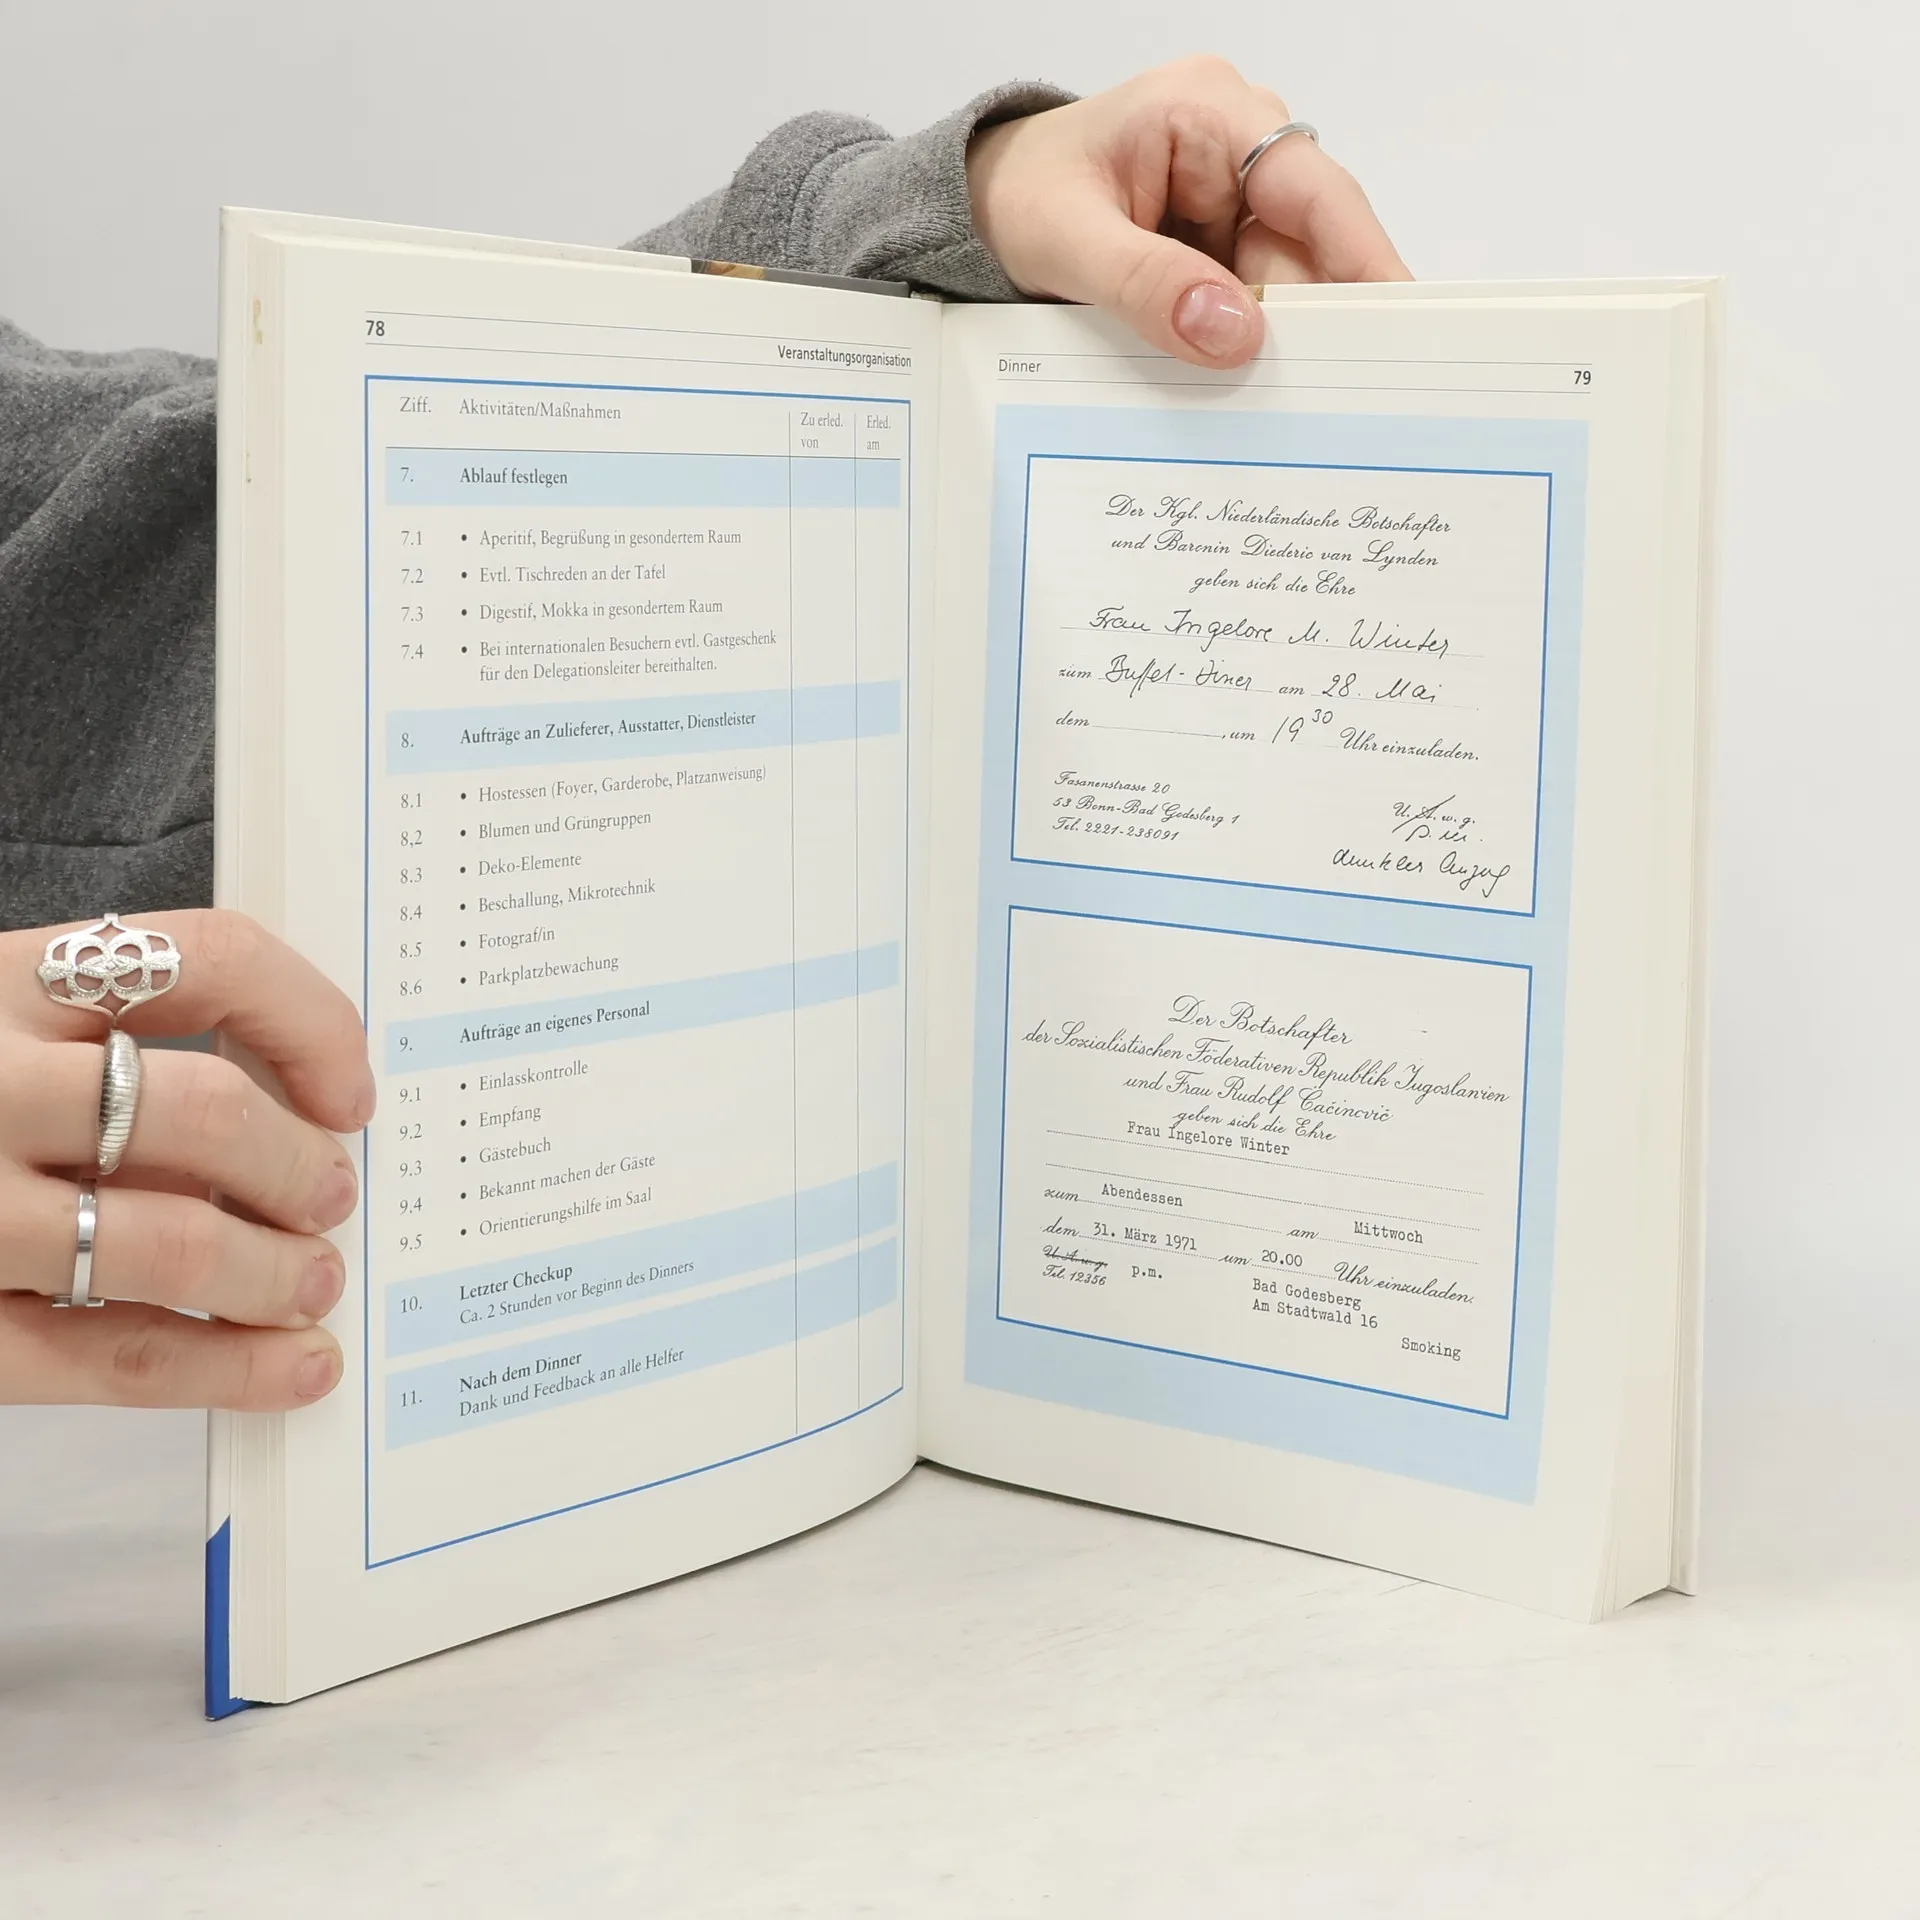 78
Veranstaltungsorganisation
Ziff. Aktivitäten/Maßnahmen Zu erled. von Erled. am
7. Ablauf festlegen
7.1 • Aperitif, Begrüßung in gesondertem Raum
7.2 • Evtl. Tischreden an der Tafel
7.3 • Digestif, Mokka in gesondertem Raum
7.4 • Bei internationalen Besuchern evtl. Gastgeschenk
für den Delegationsleiter bereithalten.
8. Aufträge an Zulieferer, Ausstatter, Dienstleister
8.1 • Hostessen (Foyer, Garderobe, Platzanweisung)
8,2 • Blumen und Grüngruppen
8.3 • Deko-Elemente
8.4 • Beschallung, Mikrotechnik
8.5 • Fotograf/in
8.6 • Parkplatzbewachung
9. Aufträge an eigenes Personal
9.1 • Einlasskontrolle
9.2 • Empfang
9.3 • Gästebuch
9.4 • Bekannt machen der Gäste
9.5 • Orientierungshilfe im Saal
10. Letzter Checkup
Ca. 2 Stunden vor Beginn des Dinners
11. Nach dem Dinner
Dank und Feedback an alle Helfer
Dinner
79
Der Kgl. Niederländische Botschafter
und Baronin Diederic van Lynden
geben sich die Ehre
Frau Ingelore M. Winter
zum Buffet-Diner am 28. Mai
dem , um 19 30 Uhr einzuladen.
Fasanenstrasse 20
53 Bonn-Bad Godesberg 1
Tel. 2221-238091
U. A. w. g.
p. m.
dunkler Anzug
Der Botschafter
der Sozialistischen Föderativen Republik Jugoslawien
und Frau Rudolf Čačinovič
geben sich die Ehre
Frau Ingelore Winter
zum Abendessen am Mittwoch
dem 31. März 1971 um 20.00 Uhr einzuladen.
U. A. w. g. p.m.
Tel. 12356
Bad Godesberg
Am Stadtwald 16
Smoking